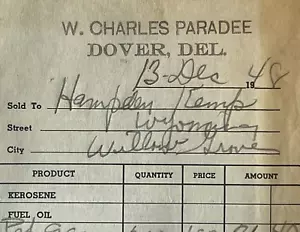 W. CHARLES PARADEE
DOVER, DEL.
13-Dec 1948
Sold To Hampden Kemp
Street Wyoming
City Willow Grove
PRODUCT QUANTITY PRICE AMOUNT
KEROSENE
FUEL OIL